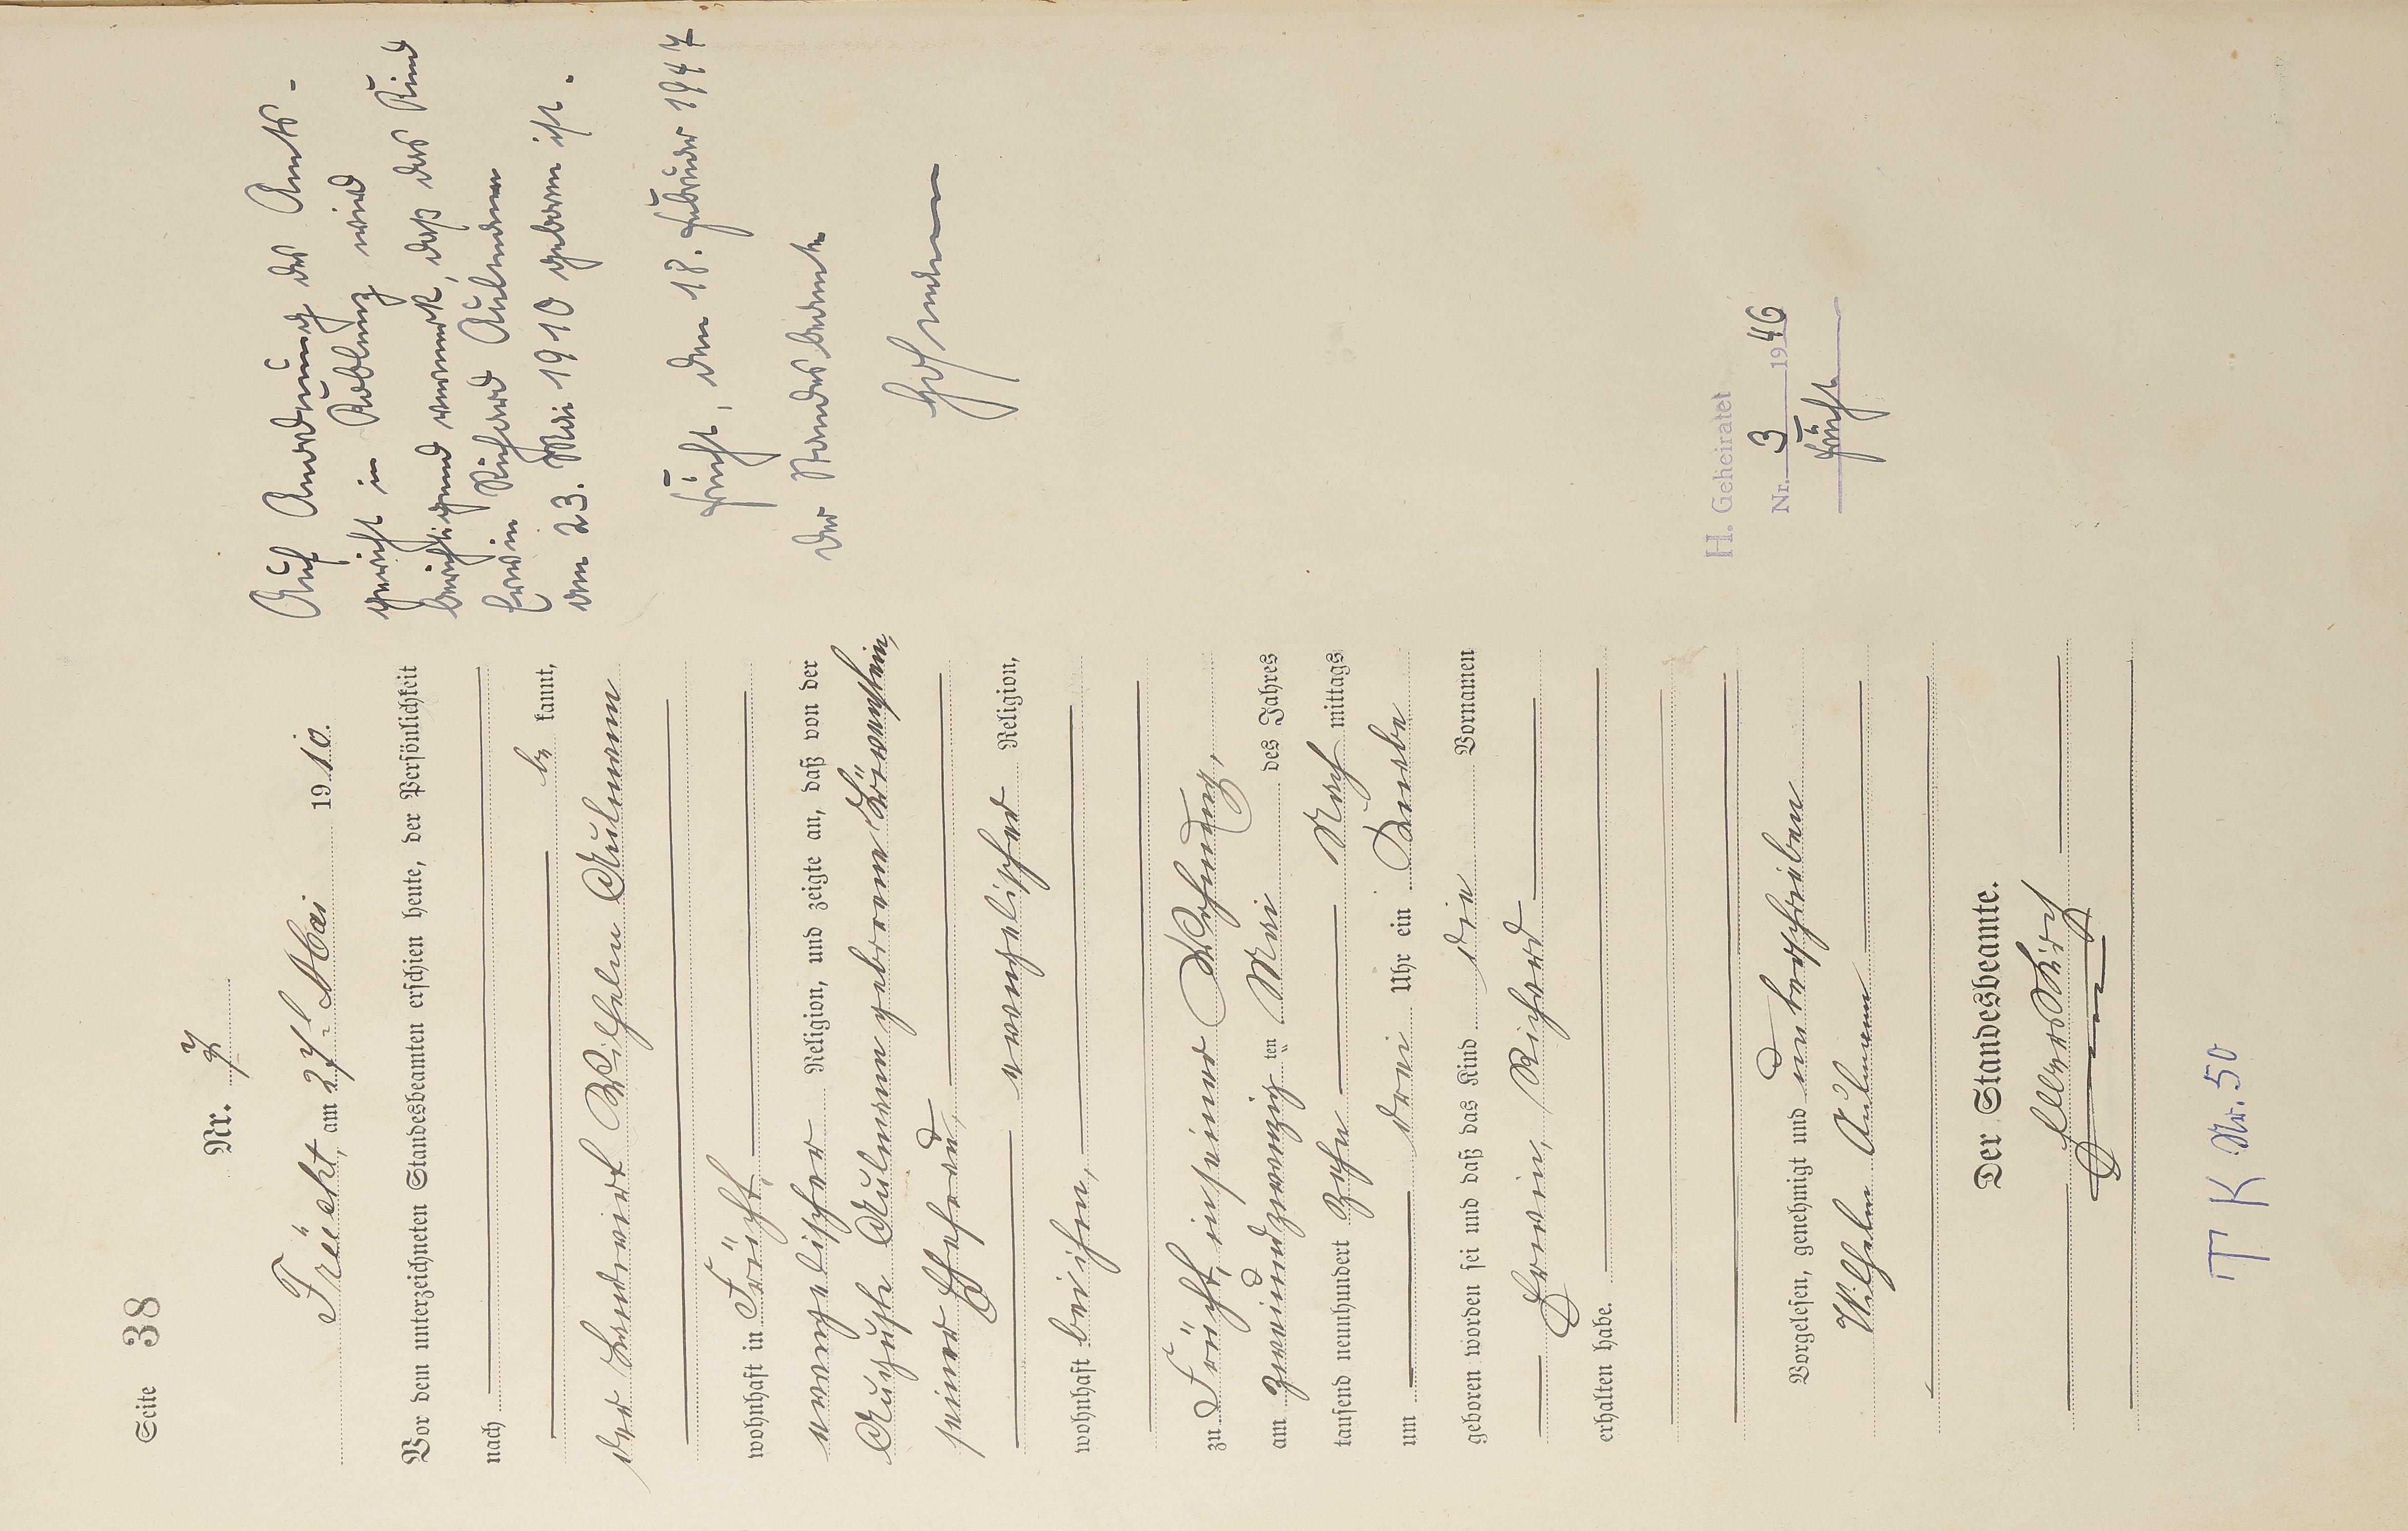 Seite 38
Nr. 7
Frücht, am 27ten Mai 1910.
Vor dem unterzeichneten Standesbeamten erschien heute, der Persönlichkeit
nach
be kannt,
der Landwirt Wilhelm Aulmann
wohnhaft in Frücht,
evangelischer Religion, und zeigte an, daß von der
Auguste Aulmann geborene Löwenstein,
seiner Ehefrau,
evangelischer Religion,
wohnhaft bei ihm,
zu Frücht, in seiner Wohnung,
am zweiundzwanzig ten Mai des Jahres
tausend neunhundert zehn Nach mittags
um drei Uhr ein Knabe
geboren worden sei und daß das Kind die Vornamen
Erwin, Richard
erhalten habe.
Vorgelesen, genehmigt und unterschrieben
Wilhelm Aulmann
Der Standesbeamte.
T K Nr. 50
Auf Anordnung des Amts-
gericht in Koblenz wird
berichtigend vermerkt, daß das Kind
Erwin Richard Aulmann
am 23. Mai 1910 geboren ist.
Frücht, den 18. Februar 1947
Der Standesbeamte
Hofmann
H. Geheiratet
Nr. 3 1946
Frücht